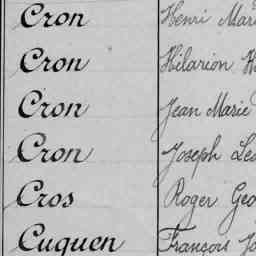 Cron Henri Mari
Cron Hilarion
Cron Jean Marie
Cron Joseph Leo
Cros Roger Geo
Cuquen François Jo